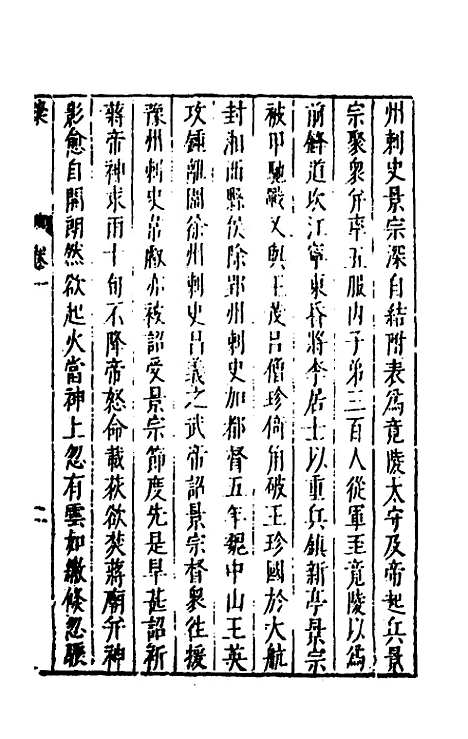 州刺史景宗深自結附表爲竟陵太守及帝起兵景
宗聚衆并率五服内子弟三百人從軍至竟陵以爲
前鋒道次江寧東昏將李居士以重兵鎮新亭景宗
被甲馳戰又與王茂吕僧珍掎角破王珍國於大航
封湘西縣侯除郢州刺史加都督五年魏中山王英
攻鍾離圍徐州刺史昌義之武帝詔景宗督衆往援
豫州刺史韋叡亦被詔受景宗節度先是旱甚詔祈
蔣帝神求雨十旬不降帝怒命載荻欲焚蔣廟并神
影愈自開朗然欲起火當神上忽有雲如繖倐忽驟
卷一
二